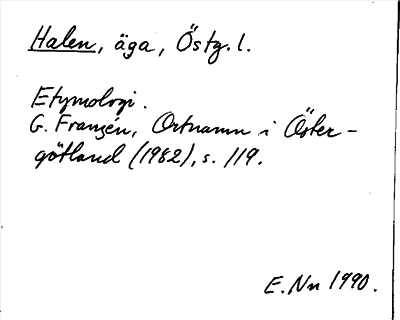 Halen, äga, Östg. l.
Etymologi.
G. Franzén, Ortnamn i Öster-
götland (1982), s. 119.
E. Nn 1990.